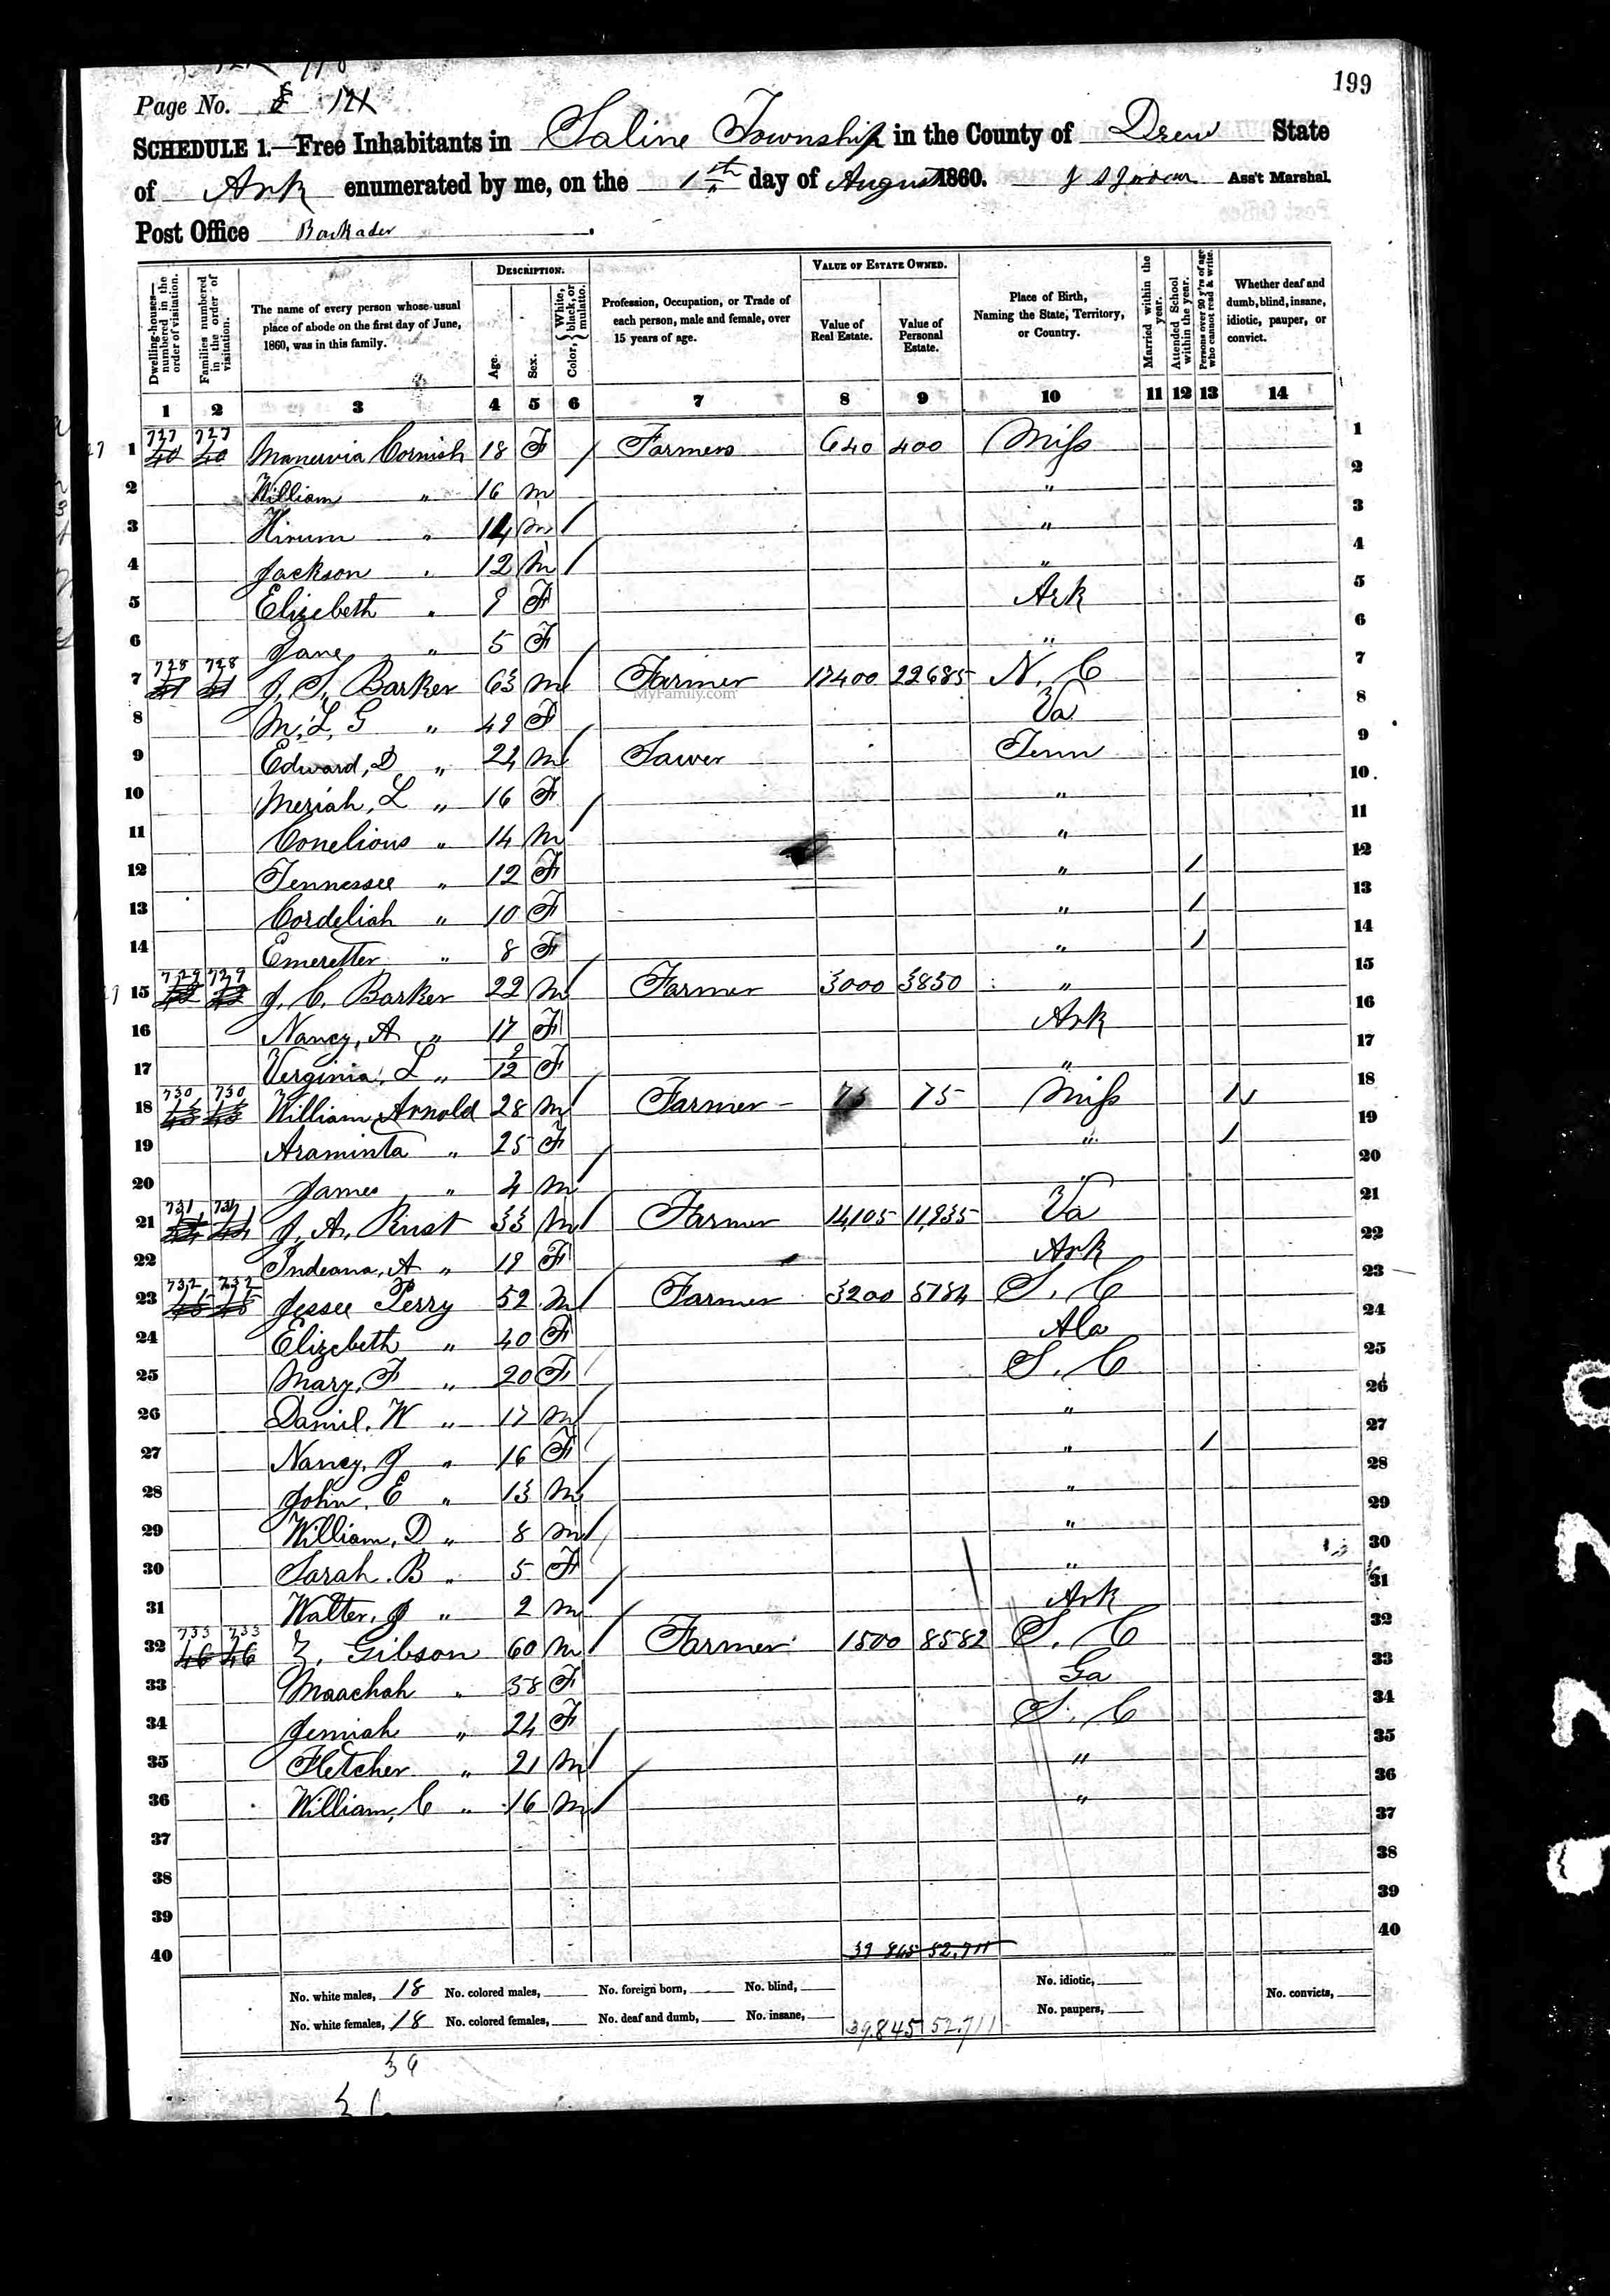 199
Page No.
SCHEDULE 1.—Free Inhabitants in Saline Township in the County of Drew State
of Ark enumerated by me, on the 1st day of August 1860. Ass't Marshal.
Post Office
Dwelling-houses—numbered in the order of visitation. Families numbered in the order of visitation. The name of every person whose usual place of abode on the first day of June, 1860, was in this family. DESCRIPTION. Age. Sex. Color, {White, black, or mulatto. Profession, Occupation, or Trade of each person, male and female, over 15 years of age. VALUE OF ESTATE OWNED. Value of Real Estate. Value of Personal Estate. Place of Birth, Naming the State, Territory, or Country. Married within the year. Attended School within the year. Persons over 20 y'rs of age who cannot read & write. Whether deaf and dumb, blind, insane, idiotic, pauper, or convict.
1 2 3 4 5 6 7 8 9 10 11 12 13 14
1 727 727 40 40 Manervia Cornish 18 F / Farmers 640 400 Miss 1
2 William " 16 m " 2
3 Hirum " 14 m / " 3
4 Jackson " 12 m / " 4
5 Elizebeth " 9 F Ark 5
6 Jane " 5 F " 6
7 728 728 41 41 J. S. Barker 63 m / Farmer 17400 22685 N. C 7
MyFamily.com
8 M, L, G " 49 F Va 8
9 Edward, D " 24 m / Sawer Tenn 9
10 Meriah, L " 16 F " 10
11 Conelious " 14 m " 11
12 Tennessee " 12 F " / 12
13 Cordeliah " 10 F " / 13
14 Emeretter " 8 F " / 14
15 729 729 42 42 J. C. Barker 22 m / Farmer 3000 3830 " 15
16 Nancy, A " 17 F Ark 16
17 Verginia, L " 9/12 F " 17
18 730 730 43 43 William Arnold 28 m / Farmer 75 75 Miss / 18
19 Araminta " 25 F " / 19
20 James " 4 m " 20
21 731 731 44 44 J. A. Rust 33 m / Farmer 14,105 11,935 Va 21
22 Indeana, A " 19 F Ark 22
23 732 732 45 45 Jessee Perry 52 m / Farmer 3200 5784 S. C 23
24 Elizebeth " 40 F Ala 24
25 Mary, F " 20 F S. C 25
26 Daniel, W " 17 m / " 26
27 Nancy, J " 16 F " / 27
28 John, E " 13 m / " 28
29 William, D " 8 m / " 29
30 Sarah, B " 5 F " 30
31 Walter, J " 2 m Ark 31
32 733 733 46 46 Z. Gibson 60 m / Farmer 1500 8582 S. C 32
33 Maachah " 58 F Ga 33
34 Jemiah " 24 F S. C 34
35 Fletcher " 21 m / " 35
36 William, C " 16 m / " 36
37 37
38 38
39 39
40 39 845 52,711 40
No. white males, 18 No. colored males, No. foreign born, No. blind, No. idiotic, No. convicts,
No. white females, 18 No. colored females, No. deaf and dumb, No. insane, 39,845 52,711 No. paupers,
36